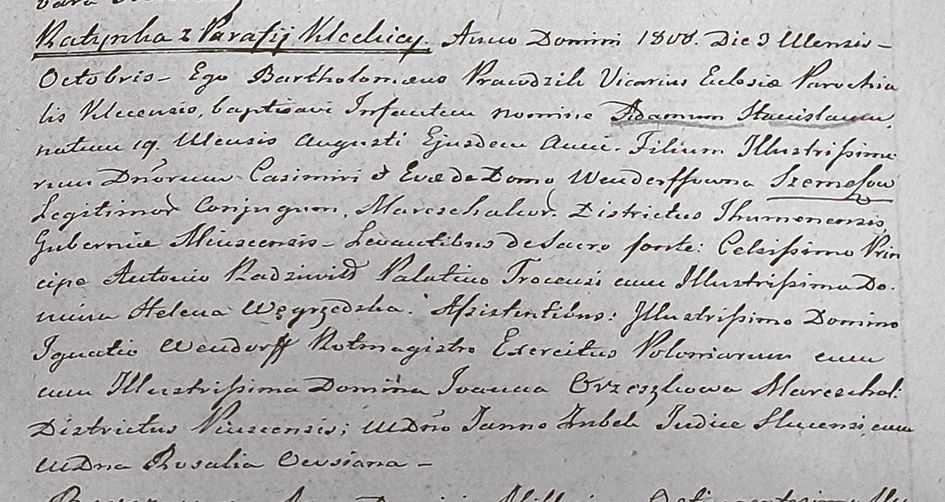 Ratynka z Parafij Kleckiey. Anno Domini 1808. Die 3 Mensis –
Octobris – Ego Bartholomæus Prawdzik Vicarius Eclesiæ Parochia
lis Klecensis, baptisavi Infantem nomine Adamum Stanislaum,
natum 19. Mensis Augusti Ejusdem Anni. Filium Illustrissimo
rum Dnorum Casimiri & Evæ de Domo Wenderffowna Szemesow
Legitimor Conjugum, Mareschalcor. Districtus Ihumenensis,
Guberniæ Minscensis – Levantibus de Sacro fonte: Celsissimo Prin
cipe Antonio Radziwiłł Palatino Trocensi cum Illustrissima Do.
mina Helena Węgrzedzka. Assistentibus: Illustrissimo Domino
Ignatio Wendorff Rotmagistro Exercitus Poloniarum cum
cum Illustrissima Domina Joanna Orzeszkowa Mareschal:
Districtus Pinscensis; MDno Janno Judice Slucensi, cum
MDna Rosalia –